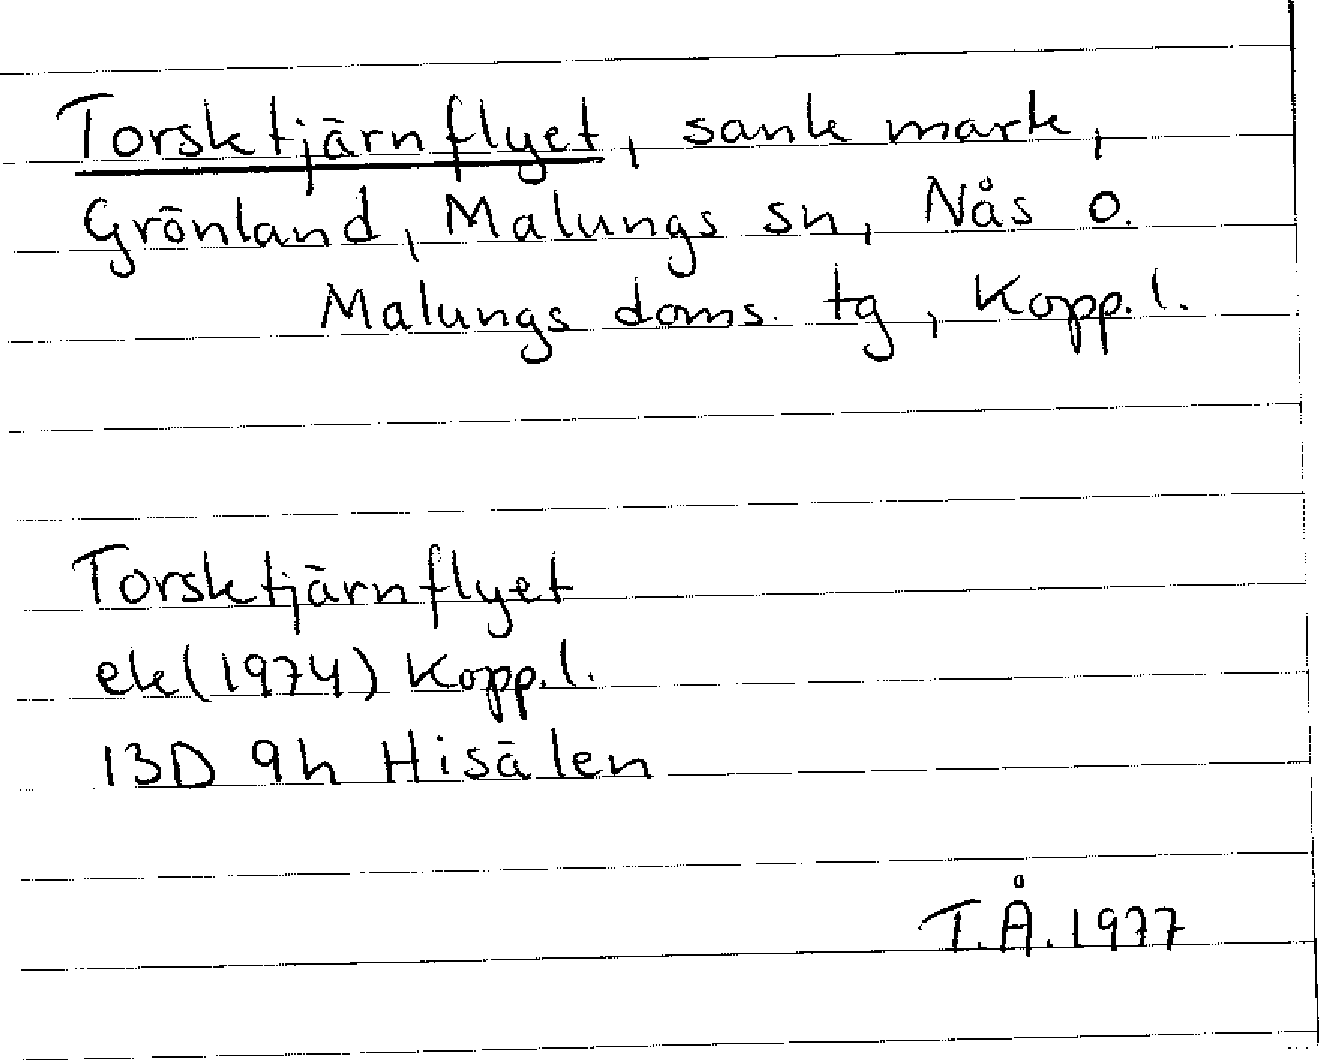 Torsktjärnflyet, sank mark,
Grönland, Malungs sn, Nås o.
Malungs doms. tg, Kopp.l.
Torsktjärnflyet
ek(1974) Kopp.l.
13D 9h Hisälen
T.Å.1977